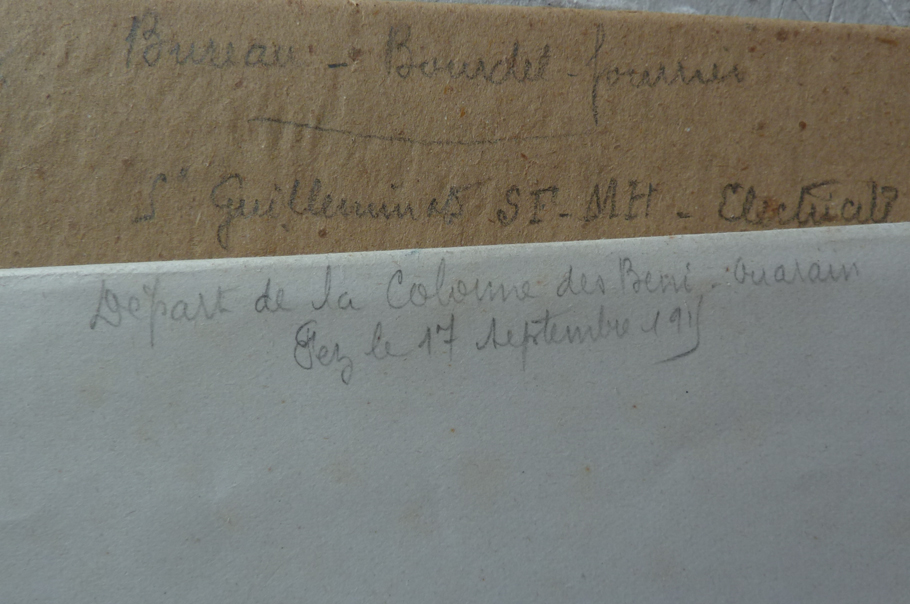 Bureau - Bourdel - fournier
St Guilleminot ST - MH - Electricité
Départ de la Colonne des Beni-Ouarain
Fez le 17 septembre 1915